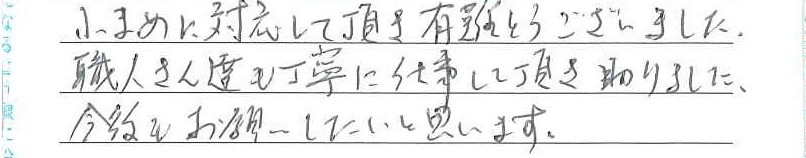 小まめに対応して頂き有難とうございました.
職人さん達も丁寧に仕事して頂き助りました、
今後もお願いしたいと思います。